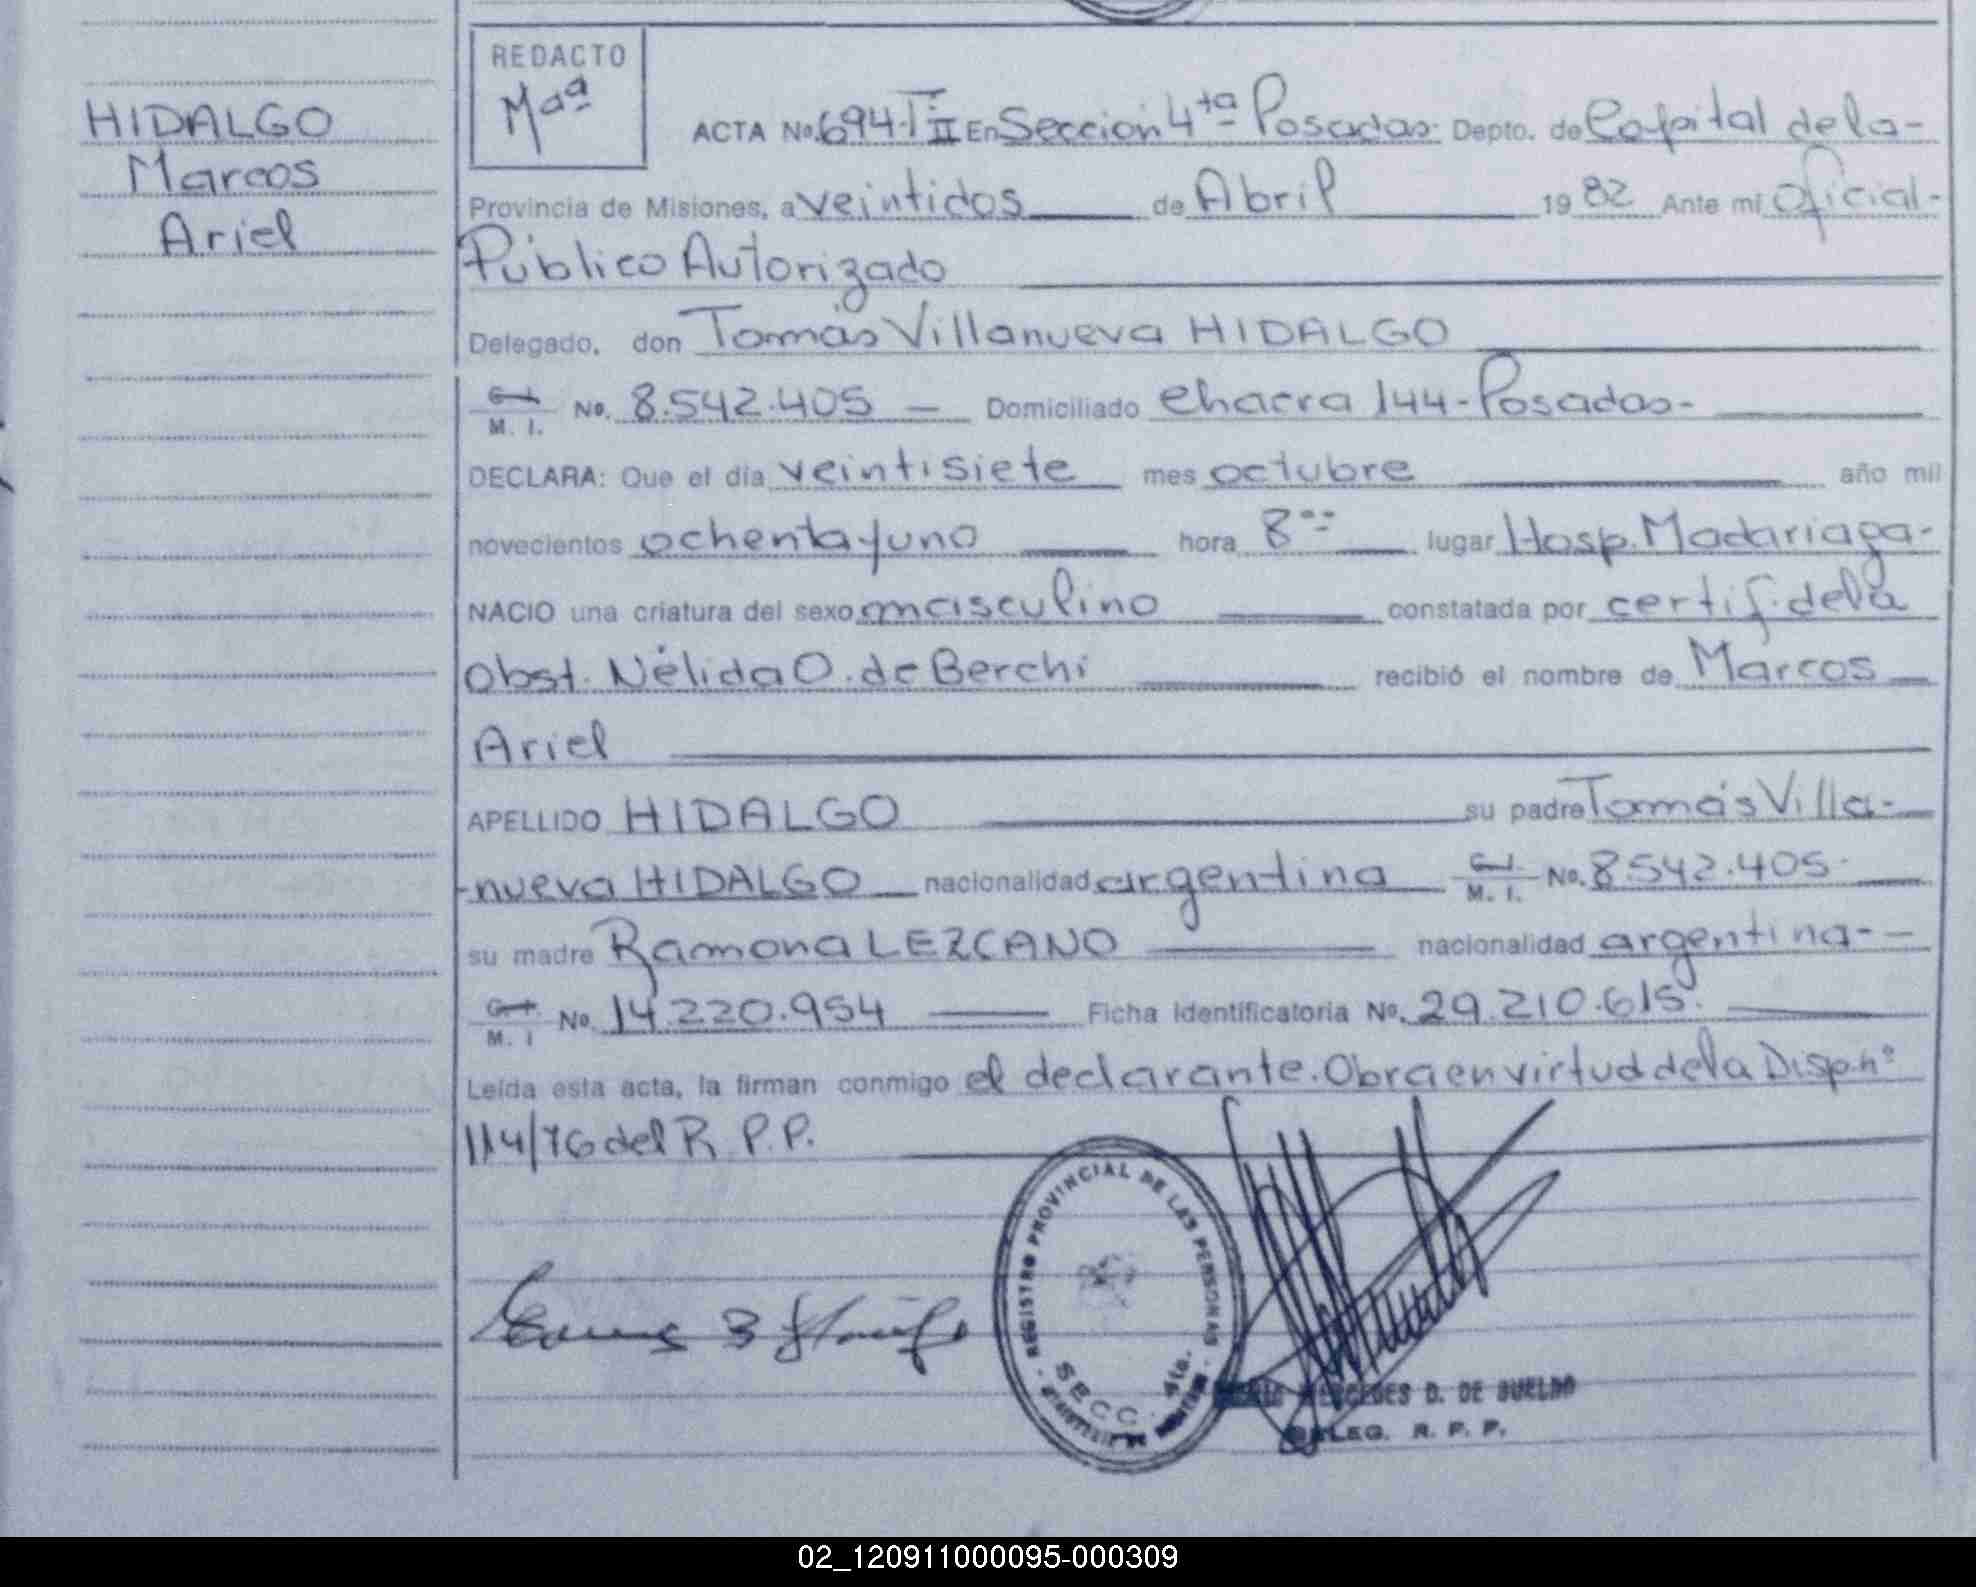 HIDALGO
Marcos
Ariel
REDACTO
Mªª
ACTA No. 694-T II En Seccion 4ta Posadas- Depto. de Capital de la-
Provincia de Misiones, a veintidos de Abril 1982 Ante mí Oficial-
Público Autorizado
Delegado, don Tomás Villanueva HIDALGO
C. I. / M. I. No. 8.542.405 — Domiciliado Chacra 144-Posadas-
DECLARA: Que el día veintisiete mes octubre año mil
novecientos ochenta y uno hora 8 lugar Hosp. Madariaga-
NACIO una criatura del sexo masculino constatada por certif. de la
Obst. Nélida O. de Berchi recibió el nombre de Marcos
Ariel
APELLIDO HIDALGO su padre Tomás Villa-
-nueva HIDALGO nacionalidad argentina C. I. / M. I. No. 8.542.405-
su madre Ramona LEZCANO nacionalidad argentina-
C. I. / M. I No. 14.220.954 Ficha Identificatoria No. 29.210.615.
Leída esta acta, la firman conmigo el declarante. Obra en virtud de la Disp. nº
114/76 del R. P. P.
REGISTRO PROVINCIAL DE LAS PERSONAS
SECC. 4ta.
MERCEDES D. DE
DELEG. R. P. P.
02_120911000095-000309